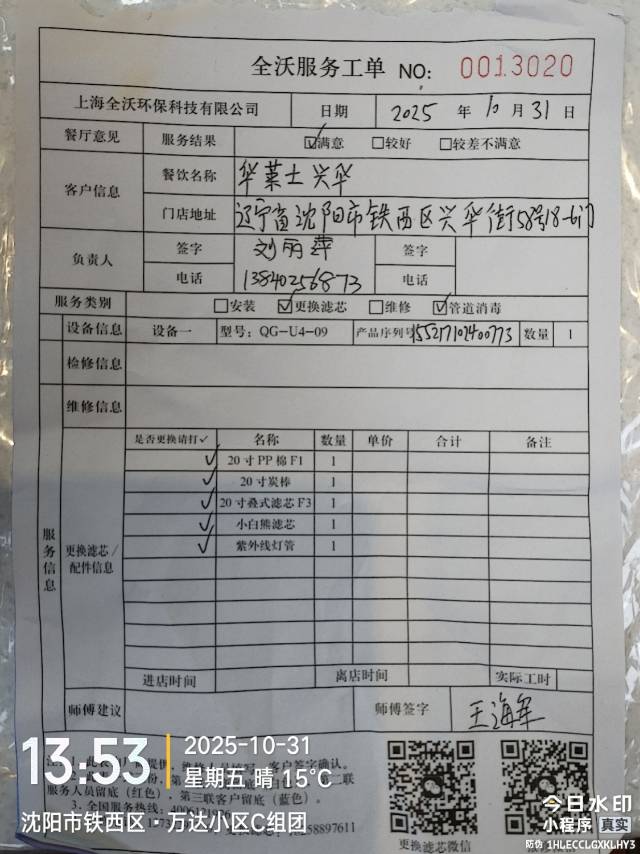 全沃服务工单 NO: 0013020
上海全沃环保科技有限公司 日期 2025 年 10 月 31 日
餐厅意见 服务结果 ☑满意 ☐较好 ☐较差不满意
客户信息 餐饮名称 华莱士兴华
门店地址 辽宁省沈阳市铁西区兴华街58号18-6门
负责人 签字 刘丽萍 签字
电话 13840256873 电话
服务类别 ☐安装 ☑更换滤芯 ☐维修 ☑管道消毒
设备信息 设备一 型号: QG-U4-09 产品序列号 155217102400773 数量 1
检修信息
维修信息
服务信息
更换滤芯/配件信息
是否更换请打✓ 名称 数量 单价 合计 备注
✓ 20寸PP棉F1 1
✓ 20寸炭棒 1
✓ 20寸叠式滤芯F3 1
✓ 小白熊滤芯 1
✓ 紫外线灯管 1
进店时间 离店时间 实际工时
师傅建议 师傅签字 王海军
客户签字确认。
服务人员留底（红色），第三联客户留底（蓝色）。
3. 全国服务热线:
58897611
更换滤芯微信
13:53
2025-10-31
星期五 晴 15°C
沈阳市铁西区·万达小区C组团
今日水印
小程序 真实
防伪 1HLECCLGXKLHY3